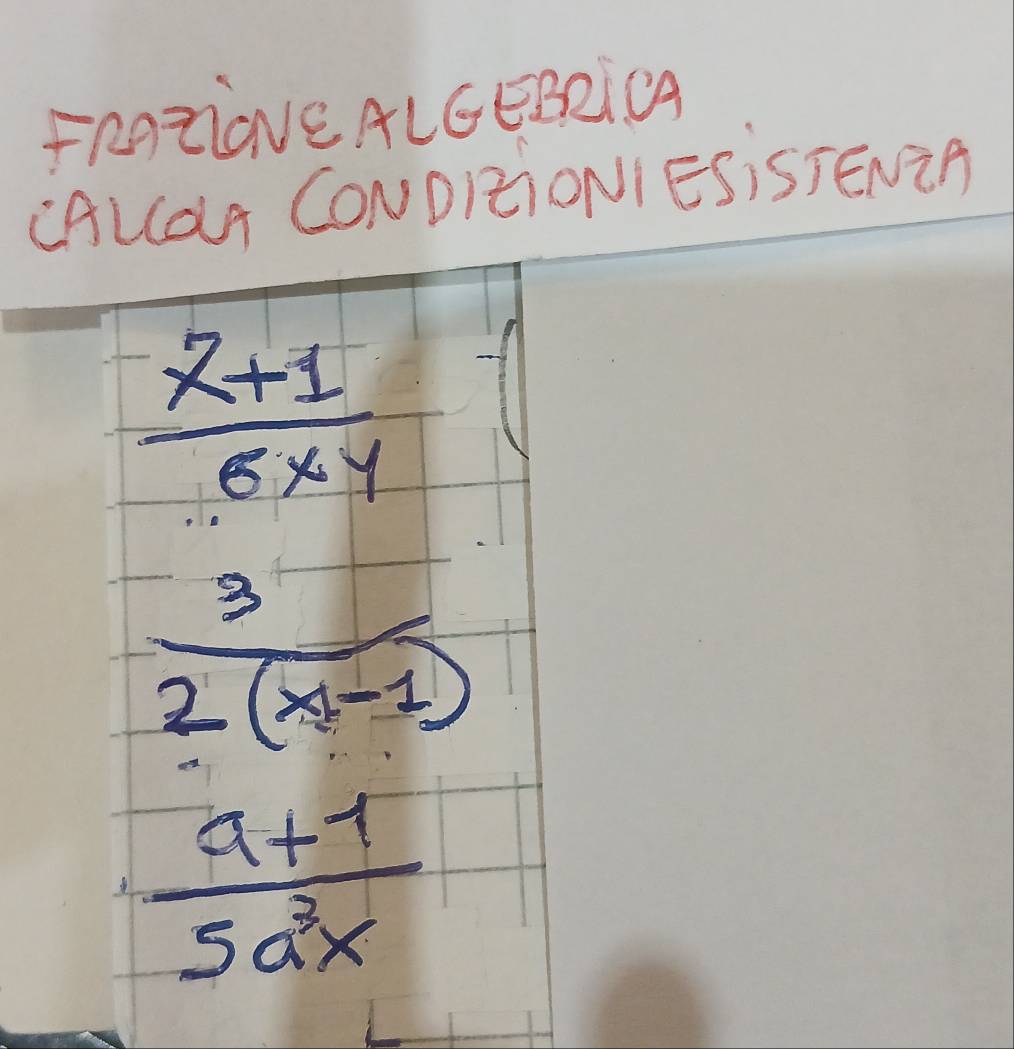 FRAZIONE ALGEBRICA
CALCOLA CONDIZIONI ESISTENZA
x+1
6xy
3
2(x-1)
a+1
5a³x